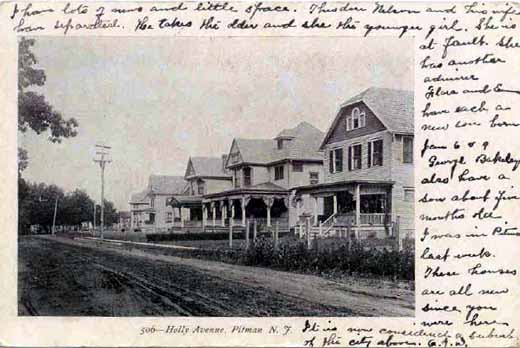 I have lots of news and little space. Theodore Nelson and his wife
have separated. He takes the older and she the younger girl. She is
at fault. She
has another
admirer
Flora and
have each a
new son born
Jan 6 & 9
George Bakeley
also have a
son about five
months old
I was in
last week.
These houses
are all new
since you
were here
306—Holly Avenue, Pitman N. J.
It is now considered a suburb
of the city above.